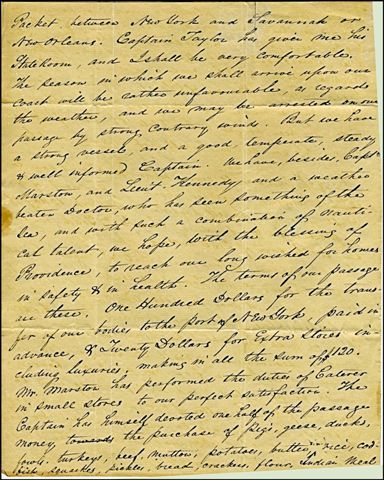 Packet between New York and Savannah or
New Orleans. Captain Taylor has given me his
State Room, and I shall be very comfortable.
The season in which we shall arrive upon our
Coast will be rather unfavourable, as regards
the weather, and we may be arrested on our
passage by strong contrary winds. But we have
a strong vessel, and a good temperate, steady
& well informed Captain. We have, besides, Capt
Marston, and Lieut. Kennedy and a weather
beaten Doctor, who has seen something of the
Sea, and with such a combination of Nauti-
cal talent, we hope, with the blessing of
Providence, to reach our long wished for homes
in safety & in health. The terms of our passage
are these. One Hundred Dollars for the trans-
fer of our bodies to the port of New York, paid in
advance, & Twenty Dollars for Extra Stores in-
cluding luxuries, making in all the sum of $120.
Mr. Marston has performed the duties of Caterer
in small stores to our perfect satisfaction. The
Captain has himself devoted one half of the passage
money, towards the purchase of pigs, geese, ducks,
fowls, turkeys, beef, mutton, potatoes, butter, rice, cod-
fish, squashes, pickles, bread, crackers, flour, Indian Meal